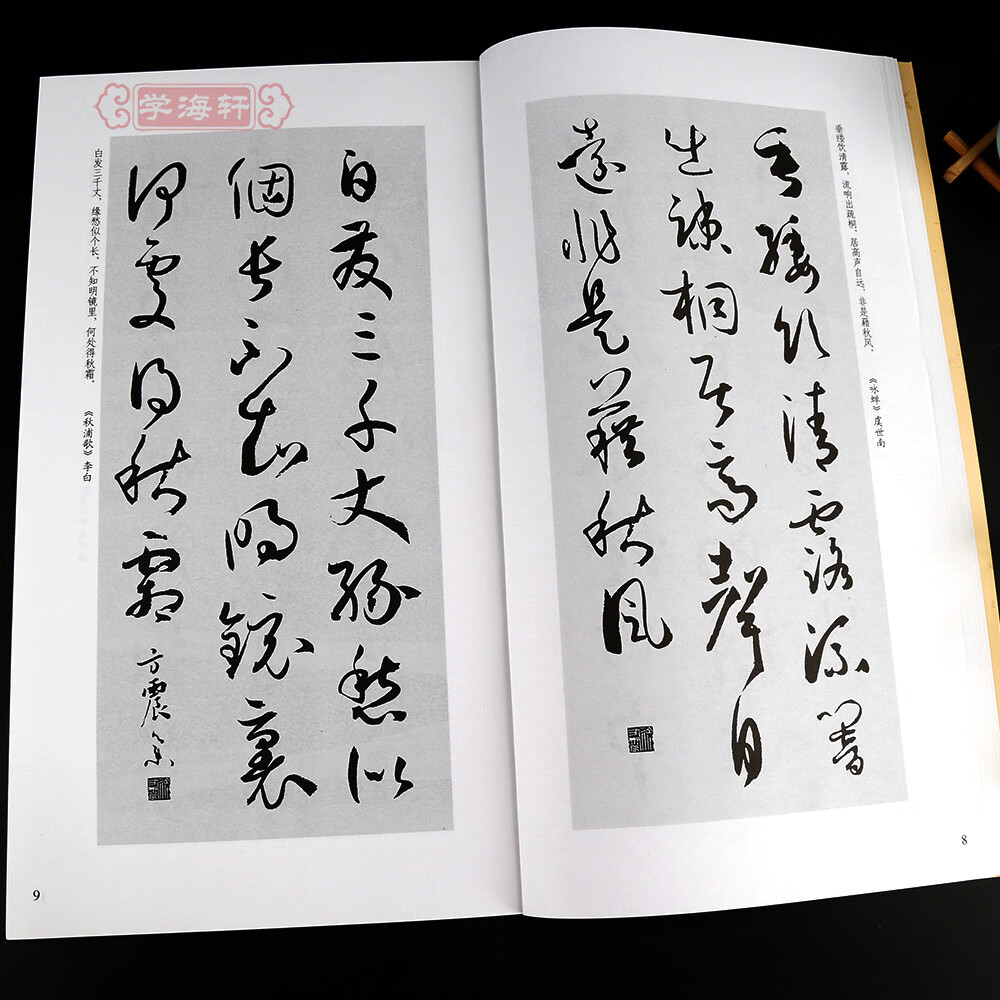 垂缕饮清露，流响出疏桐，居高声自远，非是籍秋风。
《咏蝉》虞世南
垂緌飲清露流響
出疎桐居高聲自
遠非是藉秋風
8
学海轩
白發三千丈緣愁似
個長不知明鏡裏
何處得秋霜 方震
白发三千丈，缘愁似个长。不知明镜里，何处得秋霜。
《秋浦歌》李白
9